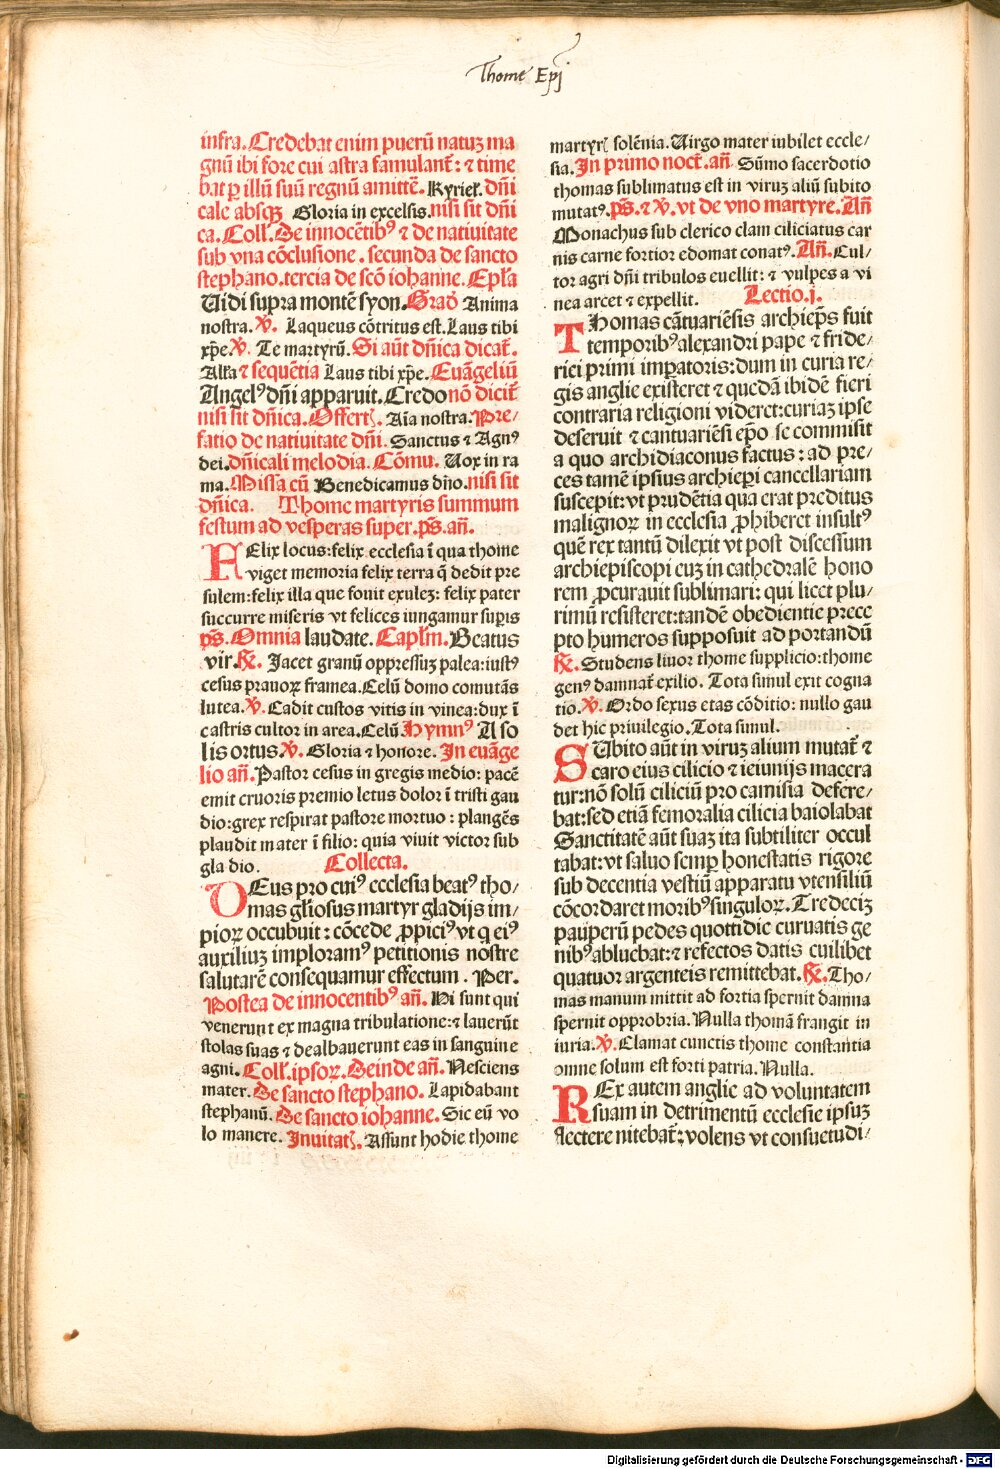 Thome Epi
infra. Credebat enim puerū natuꝫ ma
gnū ibi fore cui astra famulant̄: ⁊ time
bat ꝑ illū suū regnū amittē. Kyriel. dn̄i
cale absqꝫ Gloria in excelsis. nisi sit dn̄i
ca. Coll. De innocētibꝰ ⁊ de natiuitate
sub vna cōclusione. secunda de sancto
stephano. tercia de scō iohanne. Ep̄la
Uidi supra montē syon. Grad̄ Anima
nostra. ℣. Laqueus cōtritus est. Laus tibi
xp̄e. ℣. Te martyrū. Si aūt dn̄ica dicat̄.
Alla ⁊ sequētia Laus tibi xp̄e. Euāgeliū
Angelꝰ dn̄i apparuit. Credo nō dicit̄
nisi sit dn̄ica. Offert. Aīa nostra. Pre/
fatio de natiuitate dn̄i. Sanctus ⁊ Agnꝰ
dei. dn̄icali melodia. Cōmu. Uox in ra
ma. Missa cū Benedicamus dn̄o. nisi sit
dn̄ica. Thome martyris summum
festum ad vesperas super. ps̄. an̄.
FElix locus: felix ecclesia ī qua thome
viget memoria felix terra q̄ dedit pre
sulem: felix illa que fouit exuleꝫ: felix pater
succurre miseris vt felices iungamur suꝑis
ps̄. Omnia laudate. Capl̄m. Beatus
vir. ℟. Jacet granū oppressuꝫ palea: iustꝰ
cesus prauoꝝ framea. Celū domo comutās
lutea. ℣. Cadit custos vitis in vinea: dux ī
castris cultor in area. Celū Hymnꝰ A so
lis ortus ℣. Gloria ⁊ honore. In euāge
lio an̄. Pastor cesus in gregis medio: pacē
emit cruoris premio letus dolor ī tristi gau
dio: grex respirat pastore mortuo: plangēs
plaudit mater ī filio: quia viuit victor sub
gla dio. Collecta.
DEus pro cuiꝰ ecclesia beatꝰ tho/
mas gl̄iosus martyr gladijs im/
pioꝝ occubuit: cōcede ꝓpiciꝰ vt q eiꝰ
auxiliuꝫ imploramꝰ petitionis nostre
salutarē consequamur effectum. Per.
Postea de innocentibꝰ an̄. Hi sunt qui
venerunt ex magna tribulatione: ⁊ lauerūt
stolas suas ⁊ dealbauerunt eas in sanguine
agni. Coll. ipsoꝝ. Deinde an̄. Nesciens
mater. De sancto stephano. Lapidabant
stephanū. De sancto iohanne. Sic eū vo
lo manere. Inuitat. Assunt hodie thome
martyr solēnia. Uirgo mater iubilet eccle/
sia. In primo noct̄. an̄. Sūmo sacerdotio
thomas sublimatus est in viruꝫ aliū subito
mutatꝰ. ps̄. ⁊ ℣. vt de vno martyre. An̄
Monachus sub clerico clam ciliciatus car
nis carne fortior edomat conatꝰ. An̄. Cul-
tor agri dn̄i tribulos euellit: ⁊ vulpes a vi
nea arcet ⁊ expellit. Lectio. j.
THomas cātuariēsis archiep̄s fuit
temporibꝰ alexandri pape ⁊ fride/
rici primi imꝑatoris: dum in curia re/
gis anglie existeret ⁊ quedā ibidē fieri
contraria religioni videret: curiaꝫ ipse
deseruit ⁊ cantuariēsi ep̄o se commisit
a quo archidiaconus factus: ad pre/
ces tamē ipsius archiep̄i cancellariam
suscepit: vt prudētia qua erat preditus
malignoꝝ in ecclesia ꝓhiberet insultꝰ
quē rex tantū dilexit vt post discessum
archiepiscopi euꝫ in cathedralē hono
rem ꝓcurauit sublimari: qui licet plu/
rimū resisteret: tandē obedientie prece
pto humeros supposuit ad portandū
℟. Studens liuor thome supplicio: thome
genꝰ damnat̄ exilio. Tota simul exit cogna
tio. ℣. Ordo sexus etas cōditio: nullo gau
det hic priuilegio. Tota simul.
SUbito aūt in viruꝫ alium mutat̄ ⁊
caro eius cilicio ⁊ ieiunijs macera
tur: nō solū ciliciū pro camisia defere/
bat: sed etiā femoralia cilicia baiolabat
Sanctitatē aūt suaꝫ ita subtiliter occul
tabat: vt saluo semꝑ honestatis rigore
sub decentia vestiū apparatu vtensiliū
cōcordaret moribꝰ singuloꝝ. Tredeciꝫ
pauperū pedes quottidie curuatis ge
nibꝰ abluebat: ⁊ refectos datis cuilibet
quatuor argenteis remittebat. ℟. Tho/
mas manum mittit ad fortia spernit damna
spernit opprobria. Nulla thomā frangit in
iuria. ℣. Clamat cunctis thome constantia
omne solum est forti patria. Nulla.
REx autem anglie ad voluntatem
suam in detrimentū ecclesie ipsuꝫ
flectere nitebat̄: volens vt consuetudi/
Digitalisierung gefördert durch die Deutsche Forschungsgemeinschaft - DFG